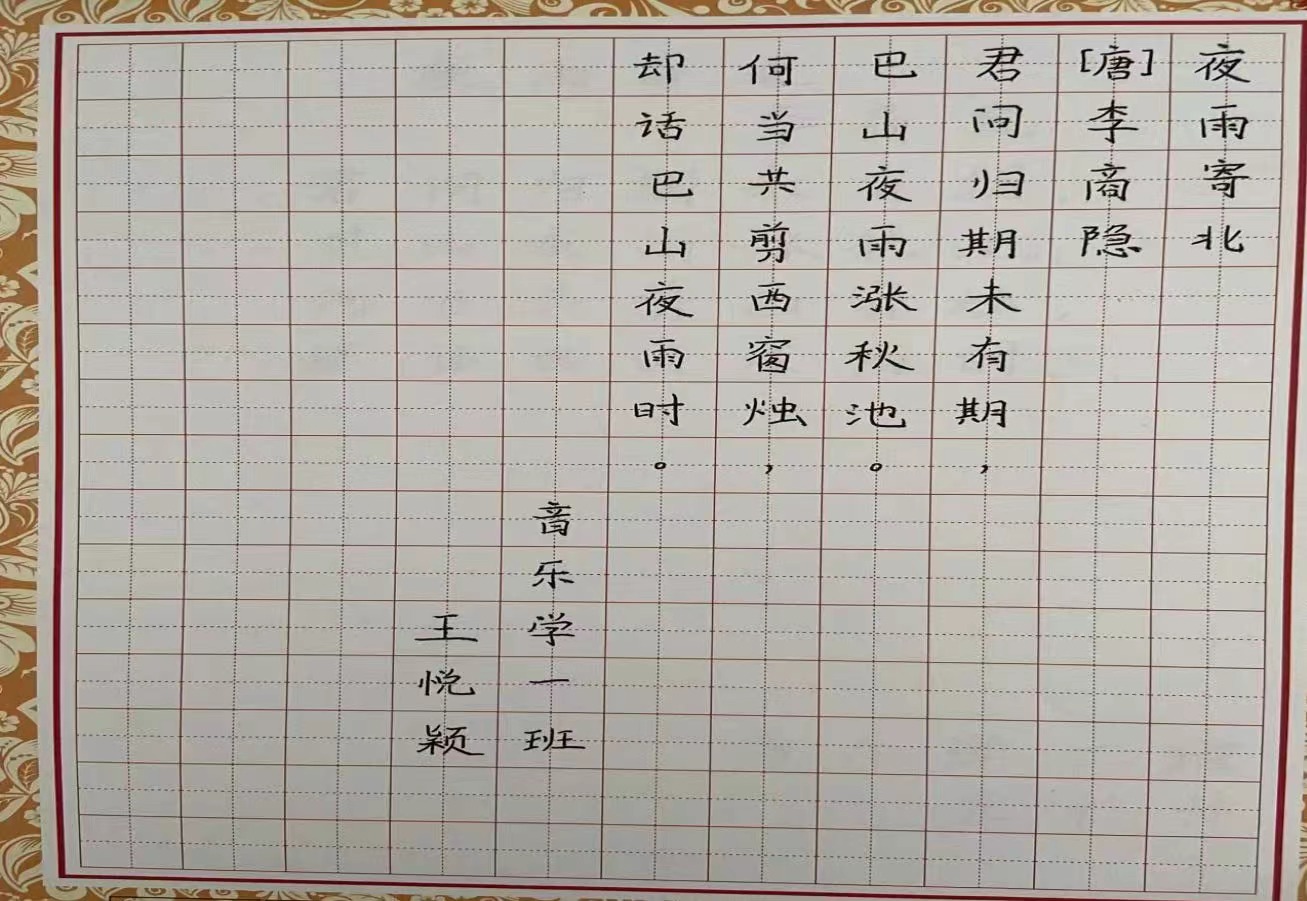 夜雨寄北
[唐]李商隐
君问归期未有期，
巴山夜雨涨秋池。
何当共剪西窗烛，
却话巴山夜雨时。
音乐学一班
王悦颖